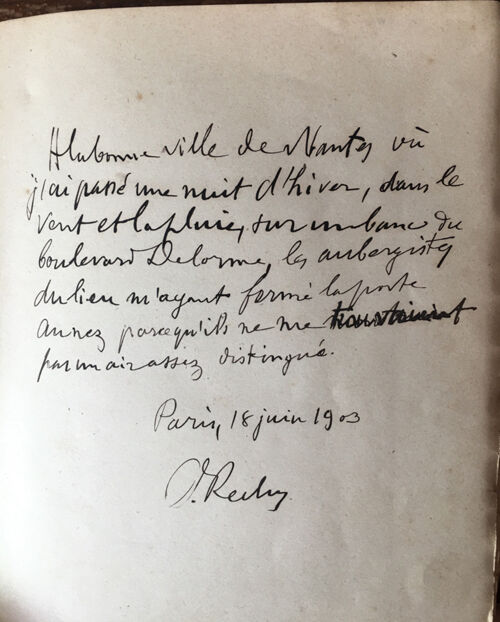 A la bonne ville de Nantes où
j'ai passé une nuit d'hiver, dans le
vent et la pluie, sur un banc du
boulevard Delorme, les aubergistes
du lieu m'ayant fermé la porte
au nez parce qu'ils ne me trouvaient
pas un air assez distingué.
Paris, 18 juin 1903